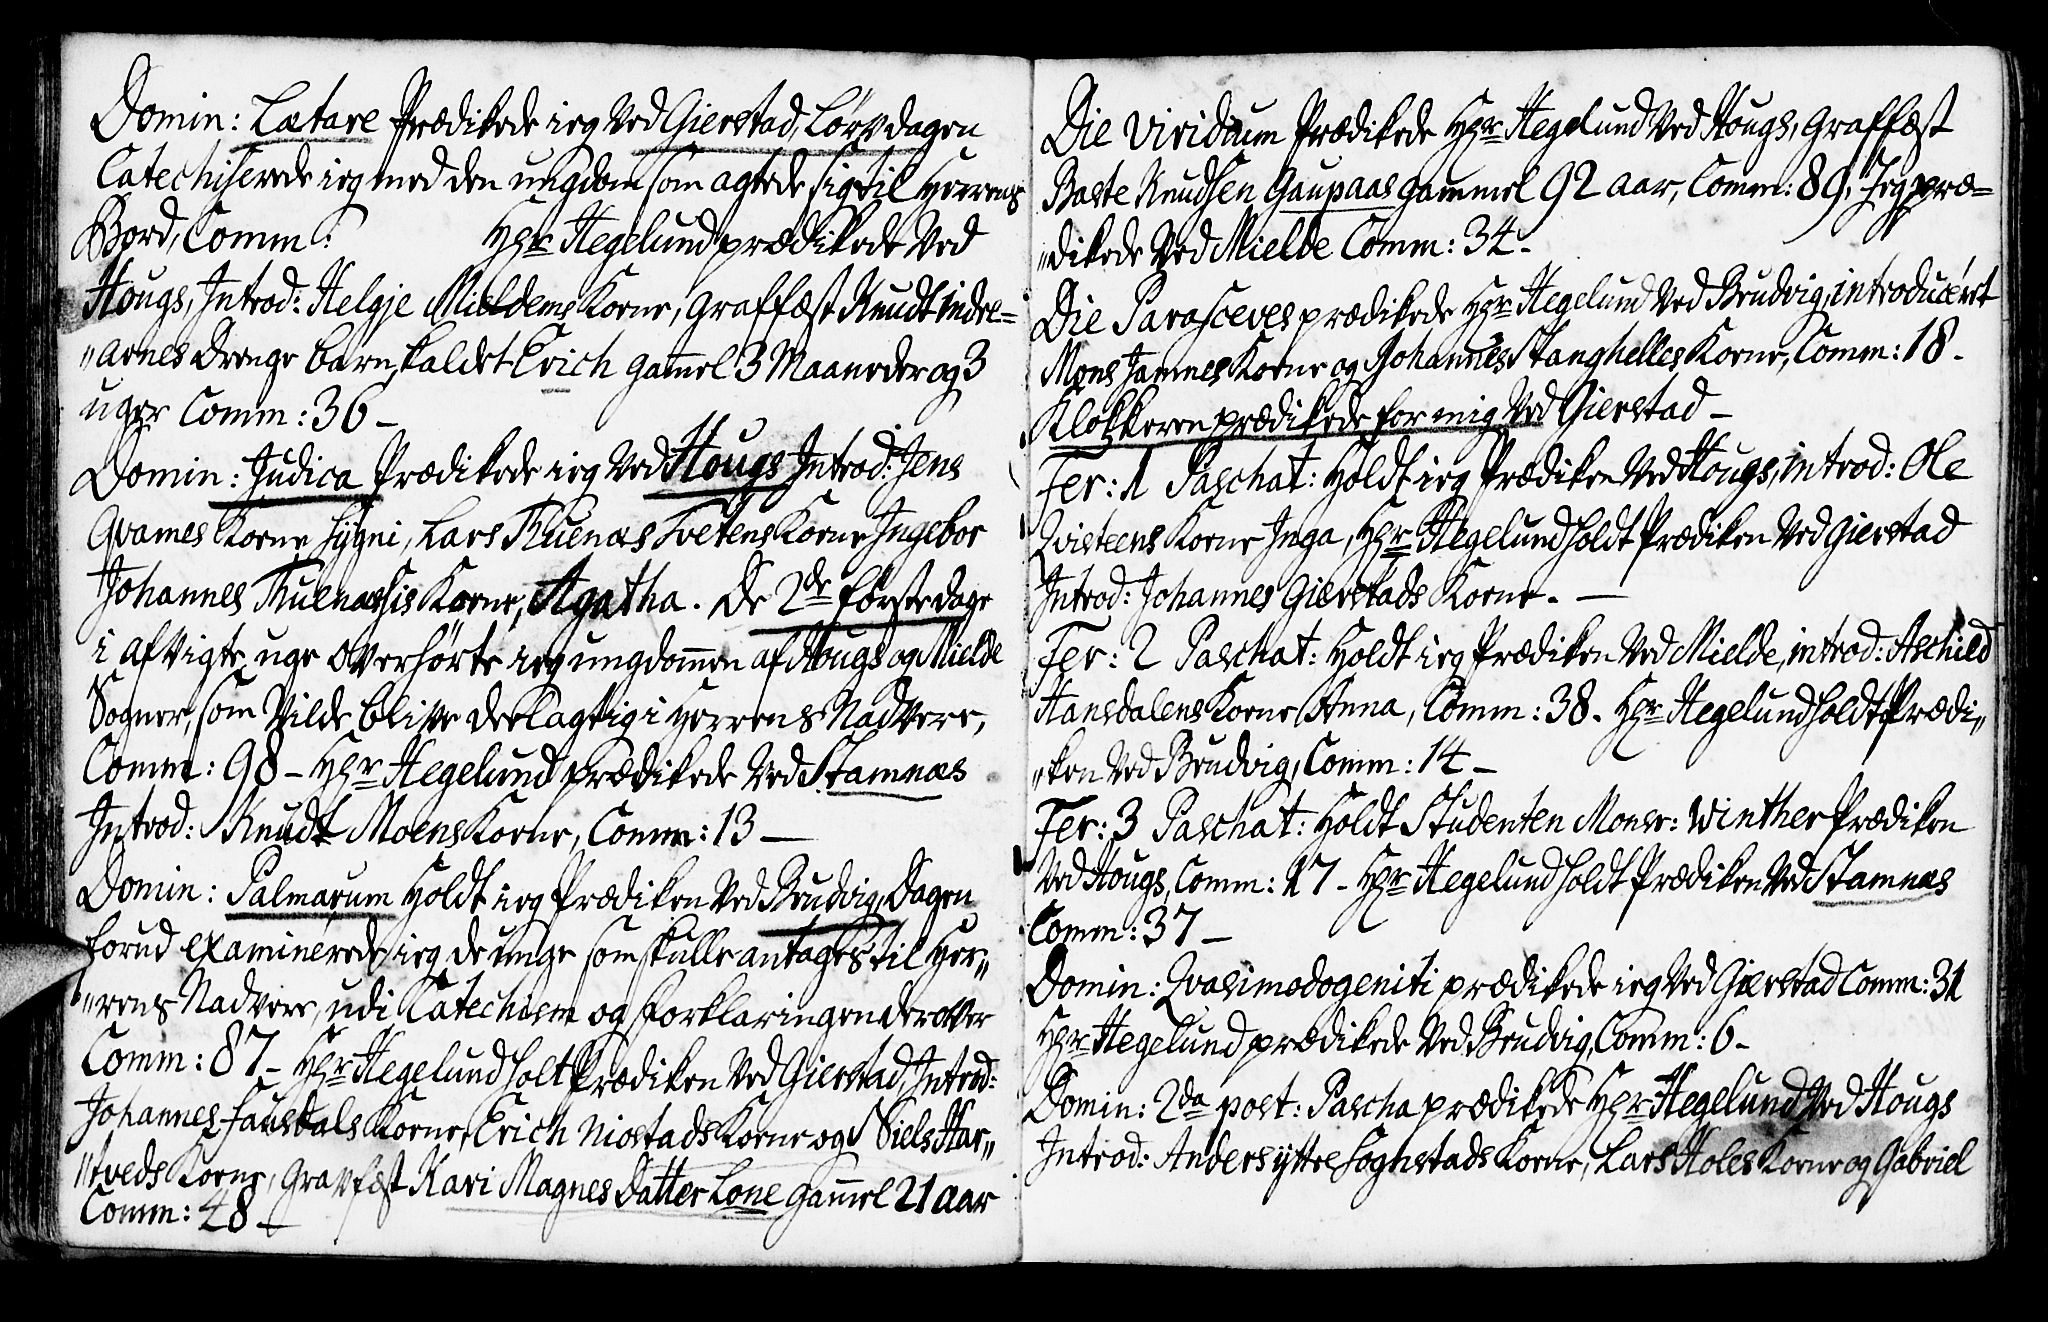 Domin: Lætare Prædikede ieg ved Gierstad, Lørvdagen
Catechiserede ieg med den ungdom som agtede sig til Herrens
Bord, Comm: Hr Hegelund prædikede ved
Hougs, Introd: Helgje Mieldems Kone, Graffæst Knudt Indre=
„arnes Drenge barn, kaldet Erich gam̄el 3 Maaneder og 3
uger Comm: 36 –
Domin: Judica Prædikede ieg ved Hougs Introd: Jens
Qvames Kone Sygni, Lars Thuenæs Tvetens Kone Ingebor
Johannes Thuenæssis Kone, Agatha. De 2de første dage
i afvigte uge overhørte ieg ungdom̄en af Hougs og Mielde
Sogner, som vilde blive deelagtig i Herrens Nadvere,
Comm: 98 – Hr Hegelund prædikede ved Stamnæs
Introd: Knudt Moens Kone, Comm: 13 –
Domin: Palmarum Holdt ieg Prædiken ved Brudvig, Dagen
forud examinérede ieg de unge som skulle antages til Her„
„rens Nadvere, udi Catechism og forklaringen derover
Comm: 87 – Hr Hegelund holt Prædiken ved Gierstad, Introd:
Johannes Fausdals Kone, Erich Niostads Kone og Niels Har„
„tveds Kone, Gravfæst Kari Magnes Datter Lone gam̄el 21 aar
Comm: 48 –
Die Viridium Prædikede Hr Hegelund ved Hougs, Graffæst
Baste Knudsen Gaupaas gammel 92 aar, Comm: 89, Jeg præ=
„dikede ved Mielde Comm: 34 –
Die Parasceves prædikede Hr Hegelund ved Brudvig, introducéret
Mons Jamnes Kone og Johannes Stanghelles Kone, Comm: 18 –
Klokkeren prædikede for mig ved Gierstad –
Fer: 1 Paschat: Holdt ieg Prædiken ved Hougs, introd: Ole
Qvisteens Kone Inga, Hr Hegelund holdt Prædiken ved Gierstad
Introd: Johannes Gierstads Kone. –
Fer: 2 Paschat: Holdt ieg Prædiken ved Mielde, introd: Aschild
Hansdalens Kone Anna, Comm: 38. Hr Hegelund holdt Prædi„
„ken ved Brudvig, Comm: 14 –
Fer: 3 Paschat: Holdt Studenten Monsr: Winther Prædiken
ved Hougs, Comm: 17 – Hr Hegelund holdt Prædiken ved Stamnæs
Comm: 37 –
Domin: Qvasimodogeniti prædikede ieg ved Gierstad Comm: 31
Hr Hegelund prædikede ved Brudvig, Comm: 6 –
Domin: 2da post: Pascha prædikede Hr Hegelund ved Hougs
Introd: Anders yttre Sognstads Kone, Lars Holes Kone og Gabriel